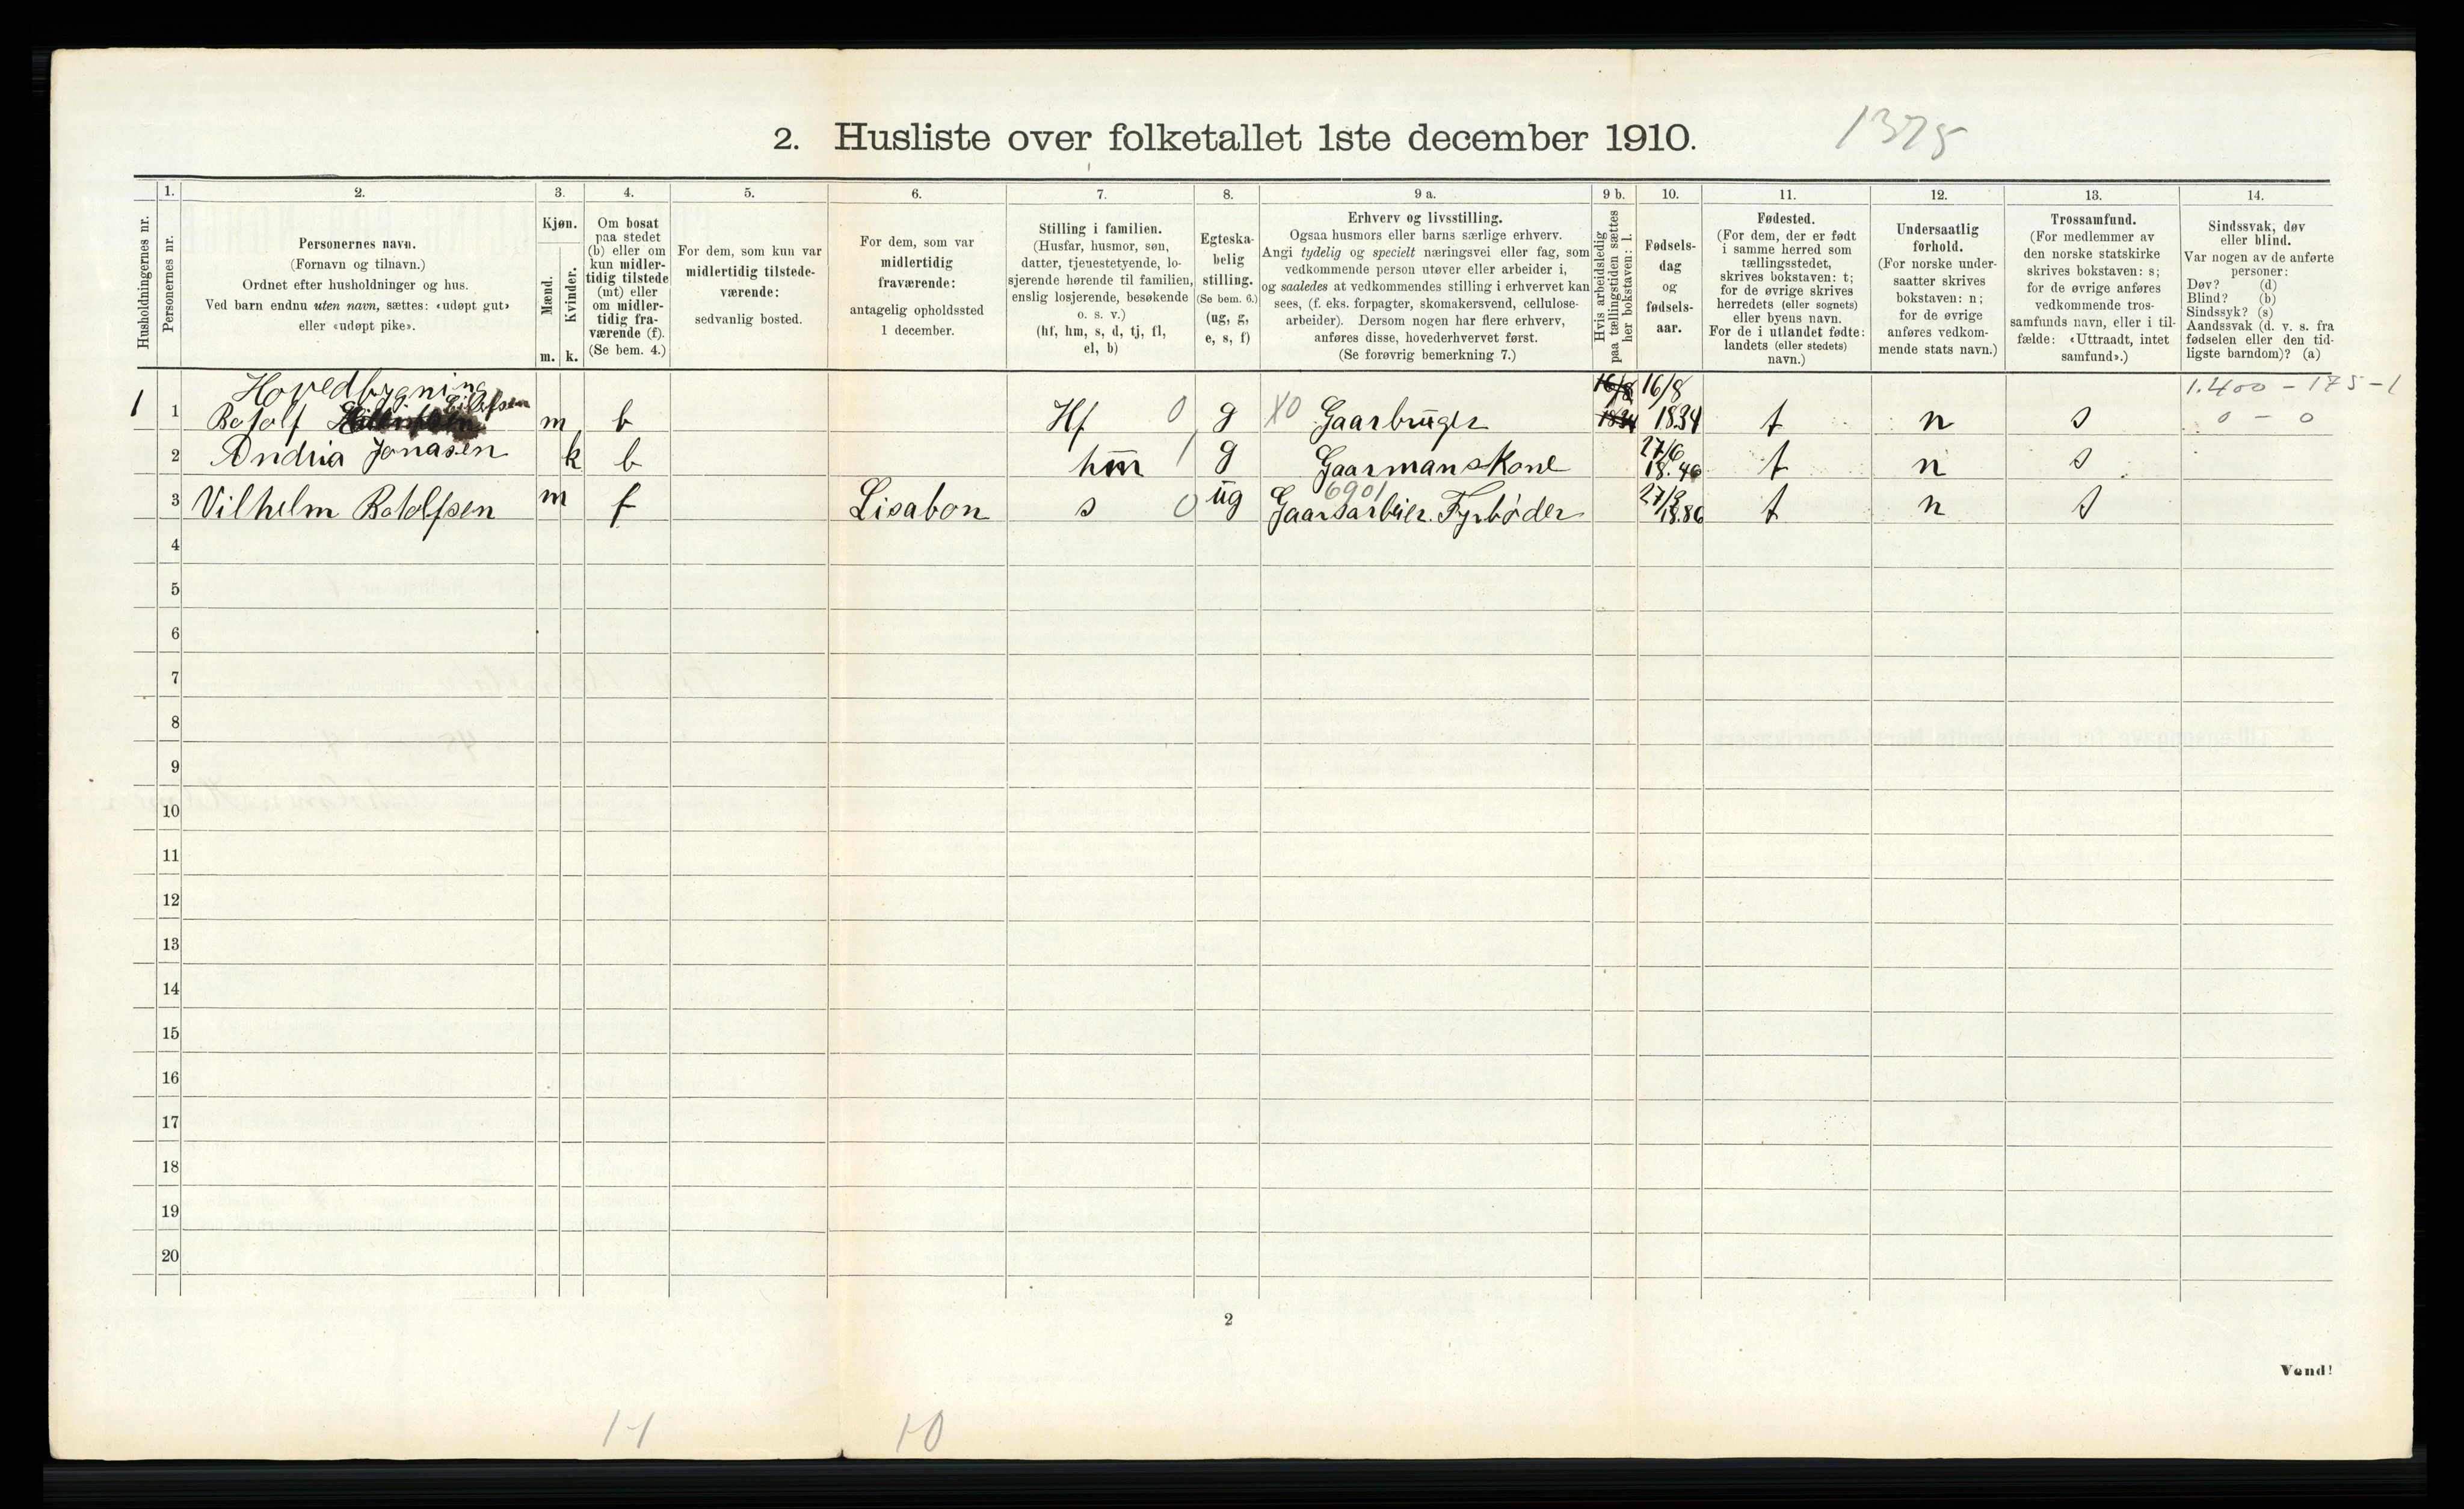 2. Husliste over folketallet 1ste december 1910.
1375
Husholdningernes nr.
1.
Personernes nr.
2.
Personernes navn.
(Fornavn og tilnavn.)
Ordnet efter husholdninger og hus.
Ved barn endnu uten navn, sættes: «udøpt gut»
eller «udøpt pike».
3.
Kjøn.
Mænd.
Kvinder.
m. k.
4.
Om bosat
paa stedet
(b) eller om
kun midler-
tidig tilstede
(mt) eller
om midler-
tidig fra-
værende (f).
(Se bem. 4.)
5.
For dem, som kun var
midlertidig tilstede-
værende:
sedvanlig bosted.
6.
For dem, som var
midlertidig
fraværende:
antagelig opholdssted
1 december.
7.
Stilling i familien.
(Husfar, husmor, søn,
datter, tjenestetyende, lo-
sjerende hørende til familien,
enslig losjerende, besøkende
o. s. v.)
(hf, hm, s, d, tj, fl,
el, b)
8.
Egteska-
belig
stilling.
(Se bem. 6.)
(ug, g,
e, s, f)
9 a.
Erhverv og livsstilling.
Ogsaa husmors eller barns særlige erhverv.
Angi tydelig og specielt næringsvei eller fag, som
vedkommende person utøver eller arbeider i,
og saaledes at vedkommendes stilling i erhvervet kan
sees, (f. eks. forpagter, skomakersvend, cellulose-
arbeider). Dersom nogen har flere erhverv,
anføres disse, hovederhvervet først.
(Se forøvrig bemerkning 7.)
9 b.
Hvis arbeidsledig
paa tællingstiden sættes
her bokstaven: l.
10.
Fødsels-
dag
og
fødsels-
aar.
11.
Fødested.
(For dem, der er født
i samme herred som
tællingsstedet,
skrives bokstaven: t;
for de øvrige skrives
herredets (eller sognets)
eller byens navn.
For de i utlandet fødte:
landets (eller stedets)
navn.)
12.
Undersaatlig
forhold.
(For norske under-
saatter skrives
bokstaven: n;
for de øvrige
anføres vedkom-
mende stats navn.)
13.
Trossamfund.
(For medlemmer av
den norske statskirke
skrives bokstaven: s;
for de øvrige anføres
vedkommende tros-
samfunds navn, eller i til-
fælde: «Uttraadt, intet
samfund».)
14.
Sindssvak, døv
eller blind.
Var nogen av de anførte
personer:
Døv? (d)
Blind? (b)
Sindssyk? (s)
Aandssvak (d. v. s. fra
fødselen eller den tid-
ligste barndom)? (a)
Hovedbygning 16/8 16/8 1.400 - 175 - 1
1 1 Botolf Eilefsen m b Hf 0 g X0 Gaarbruger 1834 1834 t n s 0 - 0
2 Andria Jonasen k b hm 1 g Gaarmanskone 27/6 18.46 t n s
6901
3 Vilhelm Botolfsen m f Lisabon s 0 ug Gaarsarbeier. Fyrbøder 27/8 18.86 t n s
4
5
6
7
8
9
10
11
12
13
14
15
16
17
18
19
20
2
Vend!
1-1 1-0